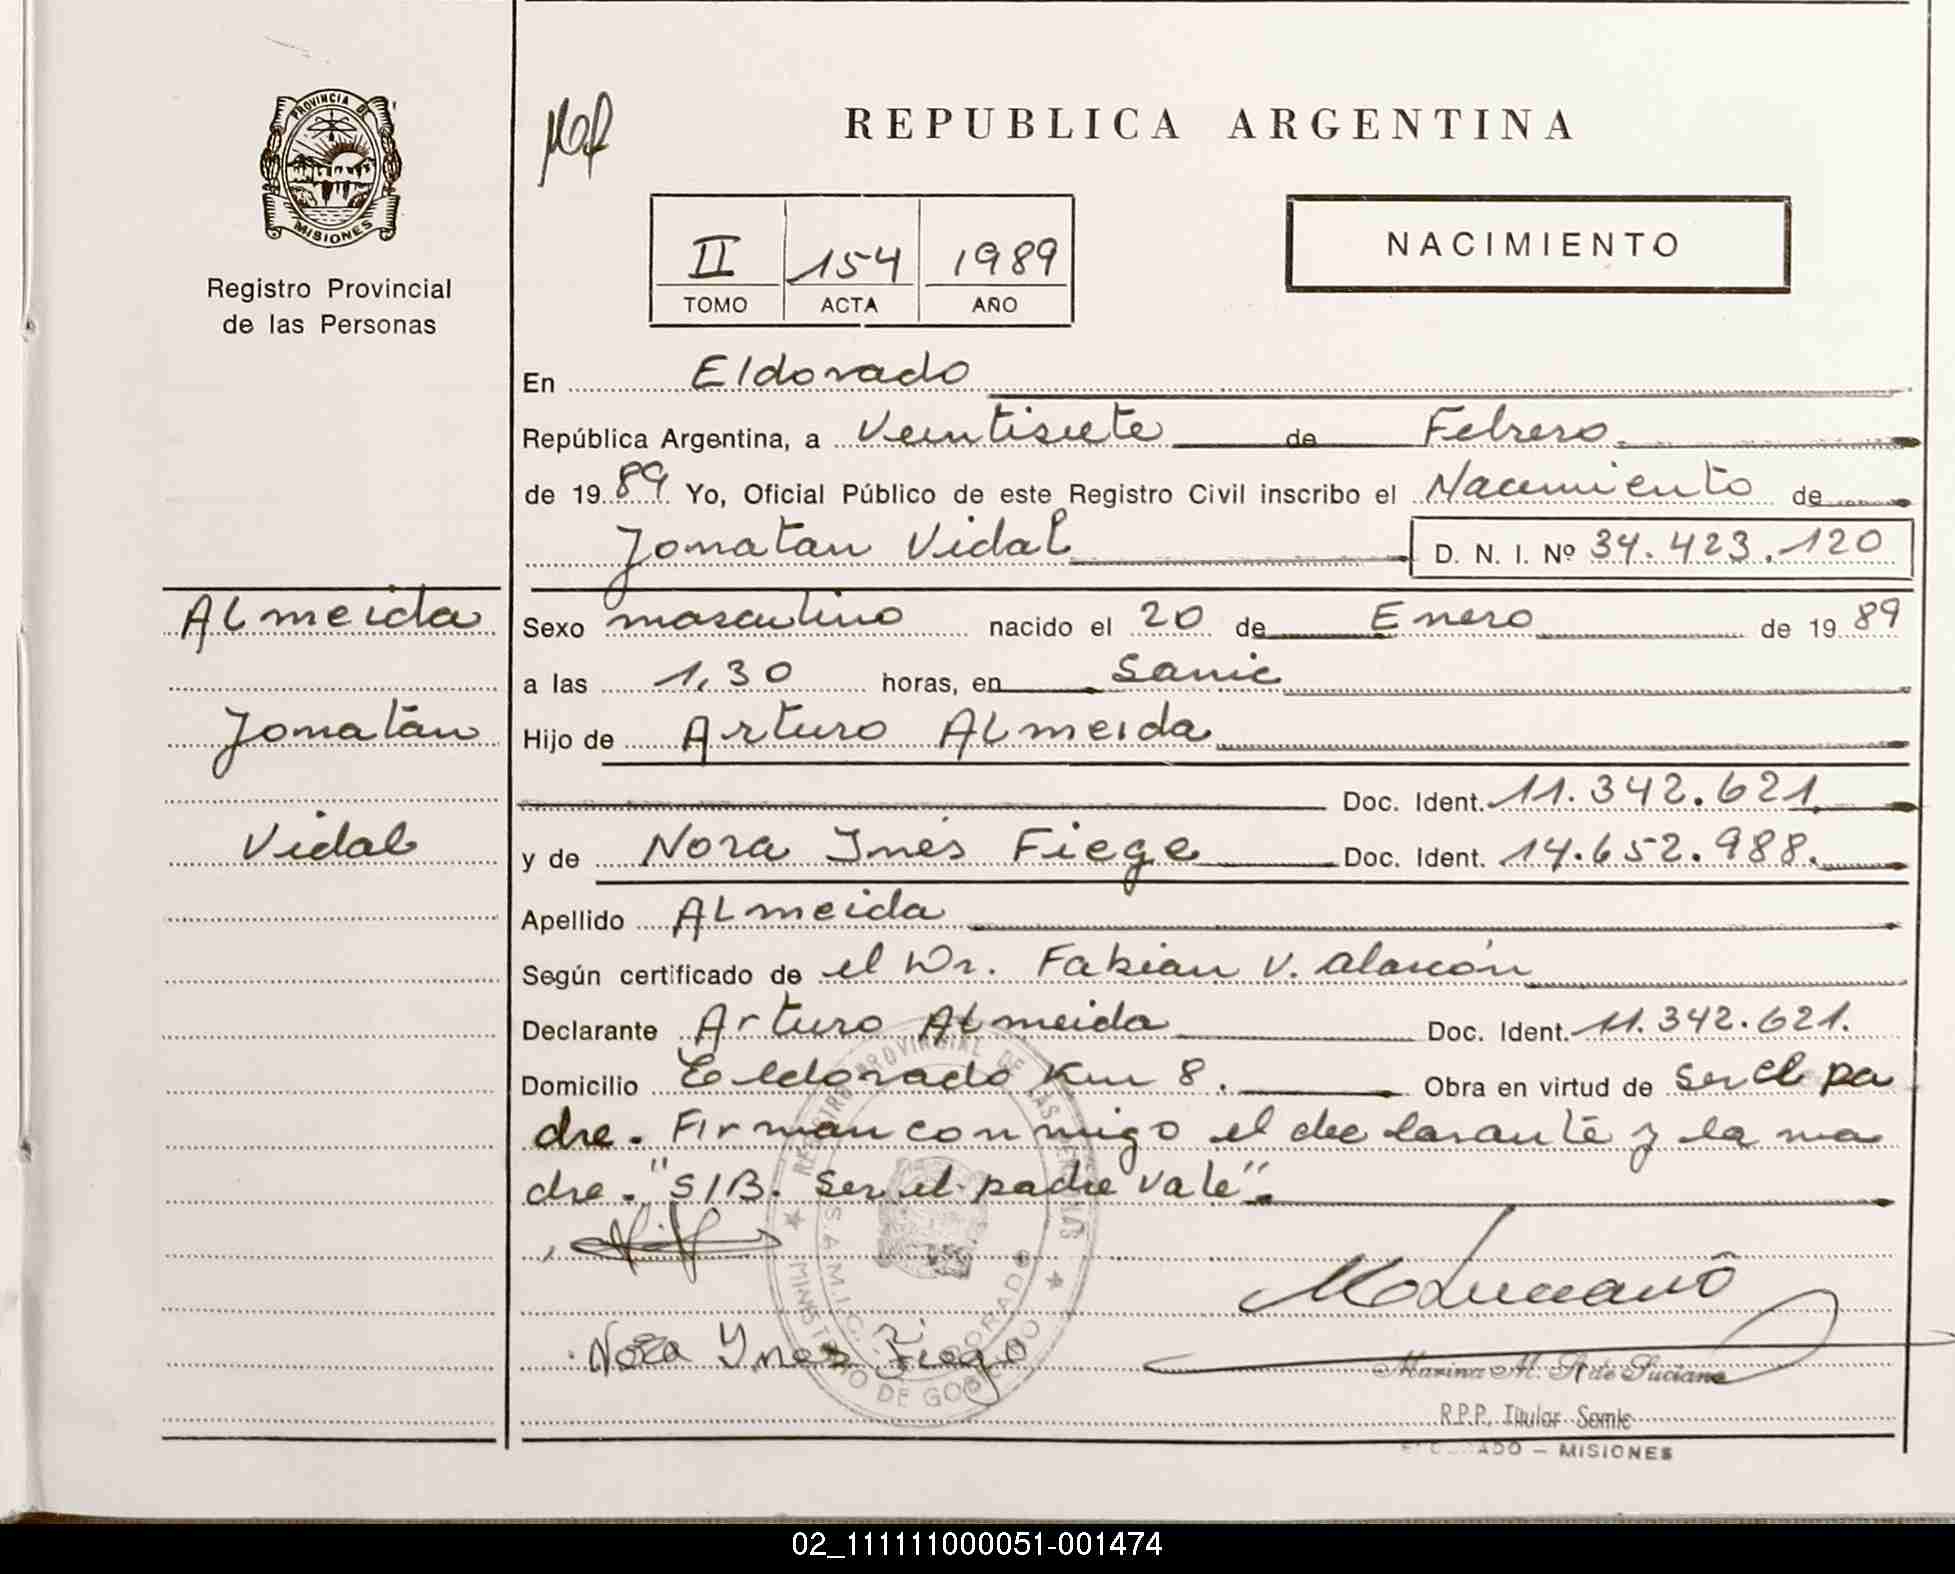 PROVINCIA DE
MISIONES
Registro Provincial
de las Personas
REPUBLICA ARGENTINA
II 154 1989
TOMO ACTA AÑO
NACIMIENTO
En Eldorado
República Argentina, a Veintisiete de Febrero
de 1989 Yo, Oficial Público de este Registro Civil inscribo el Nacimiento de
Jonatan Vidal D. N. I. Nº 34.423.120
Almeida
Jonatan
Vidal
Sexo masculino nacido el 20 de Enero de 1989
a las 1,30 horas, en Samic
Hijo de Arturo Almeida
Doc. Ident. 11.342.621.
y de Nora Inés Fiege Doc. Ident. 14.652.988.
Apellido Almeida
Según certificado de el Dr. Fabian V. Alarcón
Declarante Arturo Almeida Doc. Ident. 11.342.621.
Domicilio Eldorado Km 8. Obra en virtud de ser el pa
dre. Firman conmigo el declarante y la ma
dre. "S/B. ser el padre vale".
REGISTRO PROVINCIAL DE LAS PERSONAS
S.A.M.I.C. ELDORADO
MINISTERIO DE GOBIERNO
Nora Ynes Fiege
Marina M. de Luciano
R.P.P. Titular Samic
ELDORADO - MISIONES
02_111111000051-001474